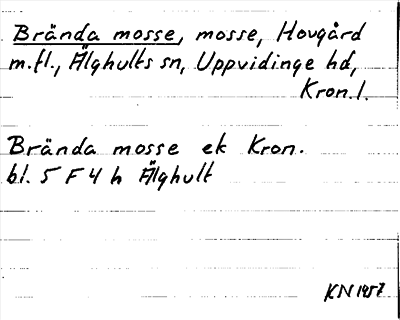 Brända mosse, mosse, Hovgård
m.fl., Älghults sn, Uppvidinge hd,
Kron.l.
Brända mosse ek Kron.
bl. 5 F 4 h Älghult
KN 1957